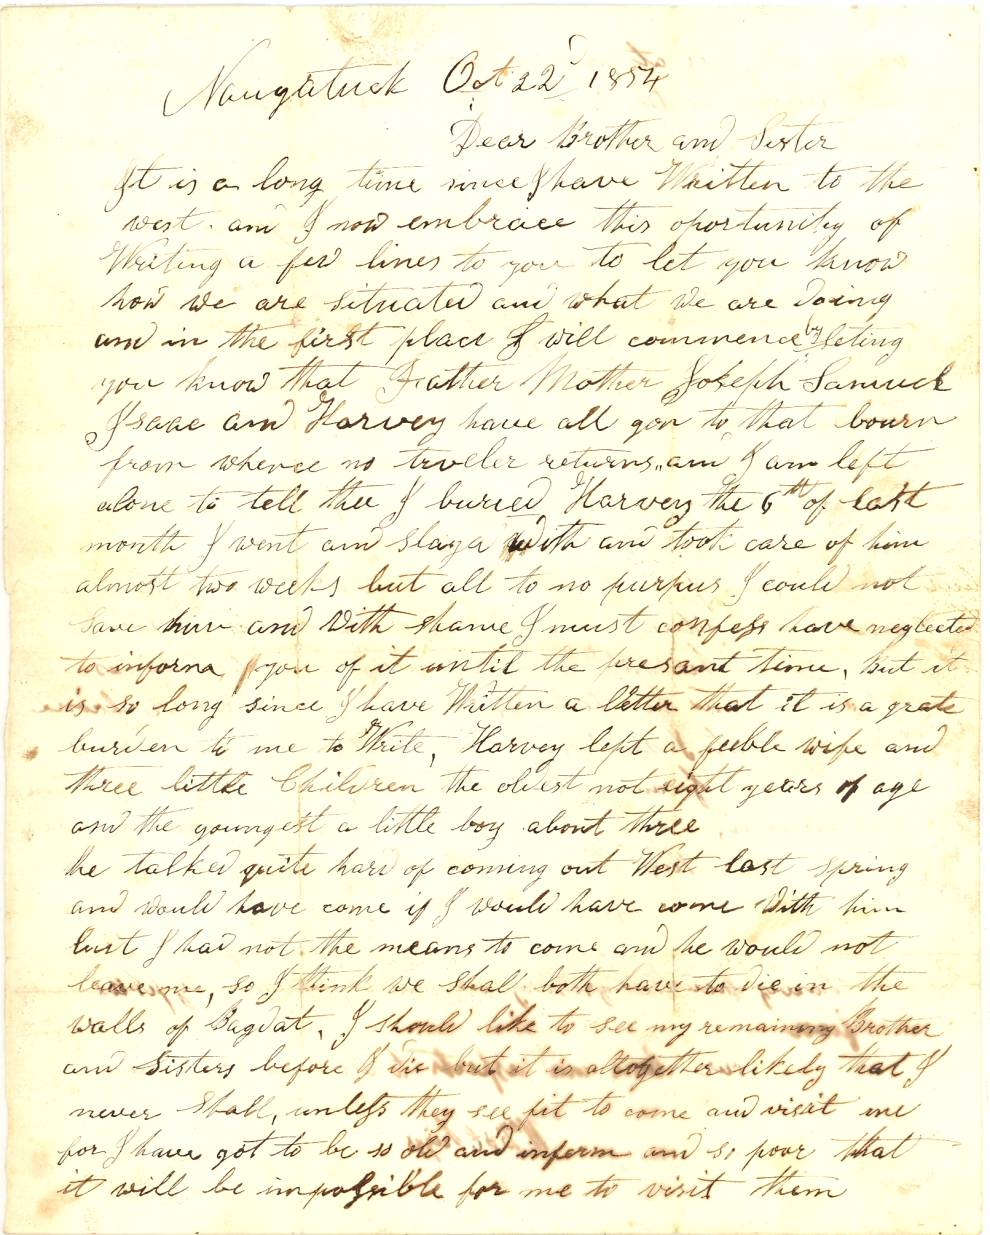 Naugatuck Oct 22d 1854
Dear Brother and Sister
It is a long time since I have Written to the
west. and I now embrace this oportunity of
Writing a few lines to you to let you know
how we are situated and what we are doing
and in the first place I will commence by leting
you know that Father Mother Joseph Samuel
Isaac and Harvey have all gon to that bourn
from whence no treveler returns,, and I am left
alone to tell thee I buried Harvey the 6th of last
month I went and staya with and took care of him
almost two weeks but all to no purpus I could not
save him and with shame I must confess have neglected
to inform you of it until the presant time, but it
is so long since I have Written a letter that it is a grate
burden to me to Write, Harvey left a feeble wife and
three little Children the oldest not eight years of age
and the youngest a little boy about three
he talked quite hard of coming out West last spring
and would have come if I would have come with him
but I had not the means to come and he would not
leave me, so I think we shal both have to die in the
walls of Bagdat, I should like to see my remaining Brother
and Sisters before I die but it is altogetther likely that I
never shall, unless they see fit to come and visit me
for I have got to be so old and inferm and so poor that
it will be impossible for me to visit them